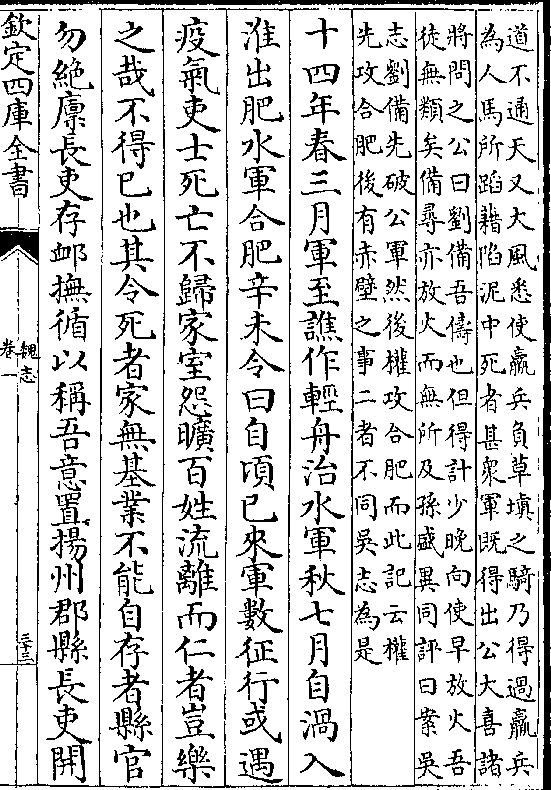 道不通天又大風悉使羸兵負草填之騎乃得過羸兵
為人馬所蹈藉陷泥中死者甚衆軍既得出公大喜諸
將問之公曰劉備吾儔也但得計少晚向使早放火吾
徒無類矣備尋亦放火而無所及孫盛異同評曰案吳
志劉備先破公軍然後權攻合肥而此記云權
先攻合肥後有赤壁之事二者不同吳志為是
十四年春三月軍至譙作輕舟治水軍秋七月自渦入
淮出肥水軍合肥辛未令曰自頃已來軍數征行或遇
疫氣吏士死亡不歸家室怨曠百姓流離而仁者豈樂
之哉不得已也其令死者家無基業不能自存者縣官
勿絶廪長吏存邮撫循以稱吾意置揚州郡縣長吏開
欽定四庫全書
魏志
卷一
三十三